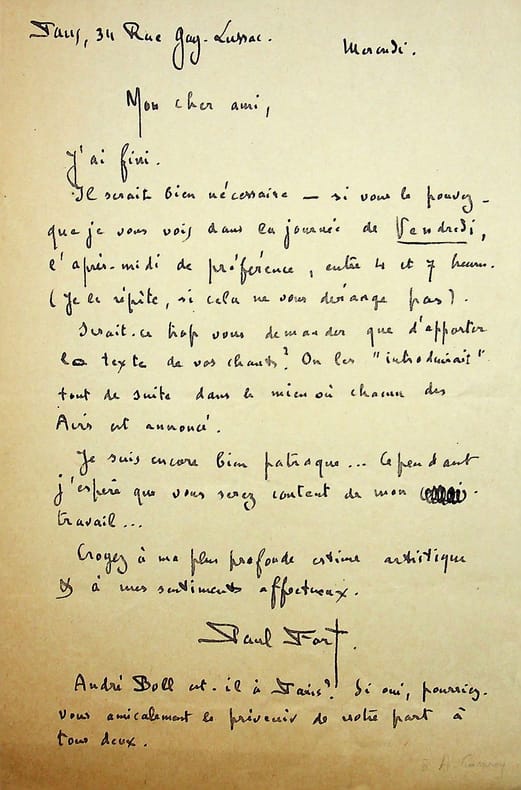 Paris, 34 Rue Gay-Lussac.
Mercredi.
Mon cher ami,
J'ai fini.
Il serait bien nécessaire — si vous le pouvez -
que je vous vois dans la journée de Vendredi,
l'après-midi de préférence, entre 4 et 7 heures.
(Je le répète, si cela ne vous dérange pas).
Serait-ce trop vous demander que d'apporter
le texte de vos chants? On les "introduirait"
tout de suite dans le mien où chacun des
Airs est annoncé.
Je suis encore bien patraque... Cependant
j'espère que vous serez content de mon
travail...
Croyez à ma plus profonde estime artistique
& à mes sentiments affectueux.
Paul Fort.
André Boll est-il à Paris? Si oui, pourriez-
vous amicalement le prévenir de notre part à
tous deux.
à A.